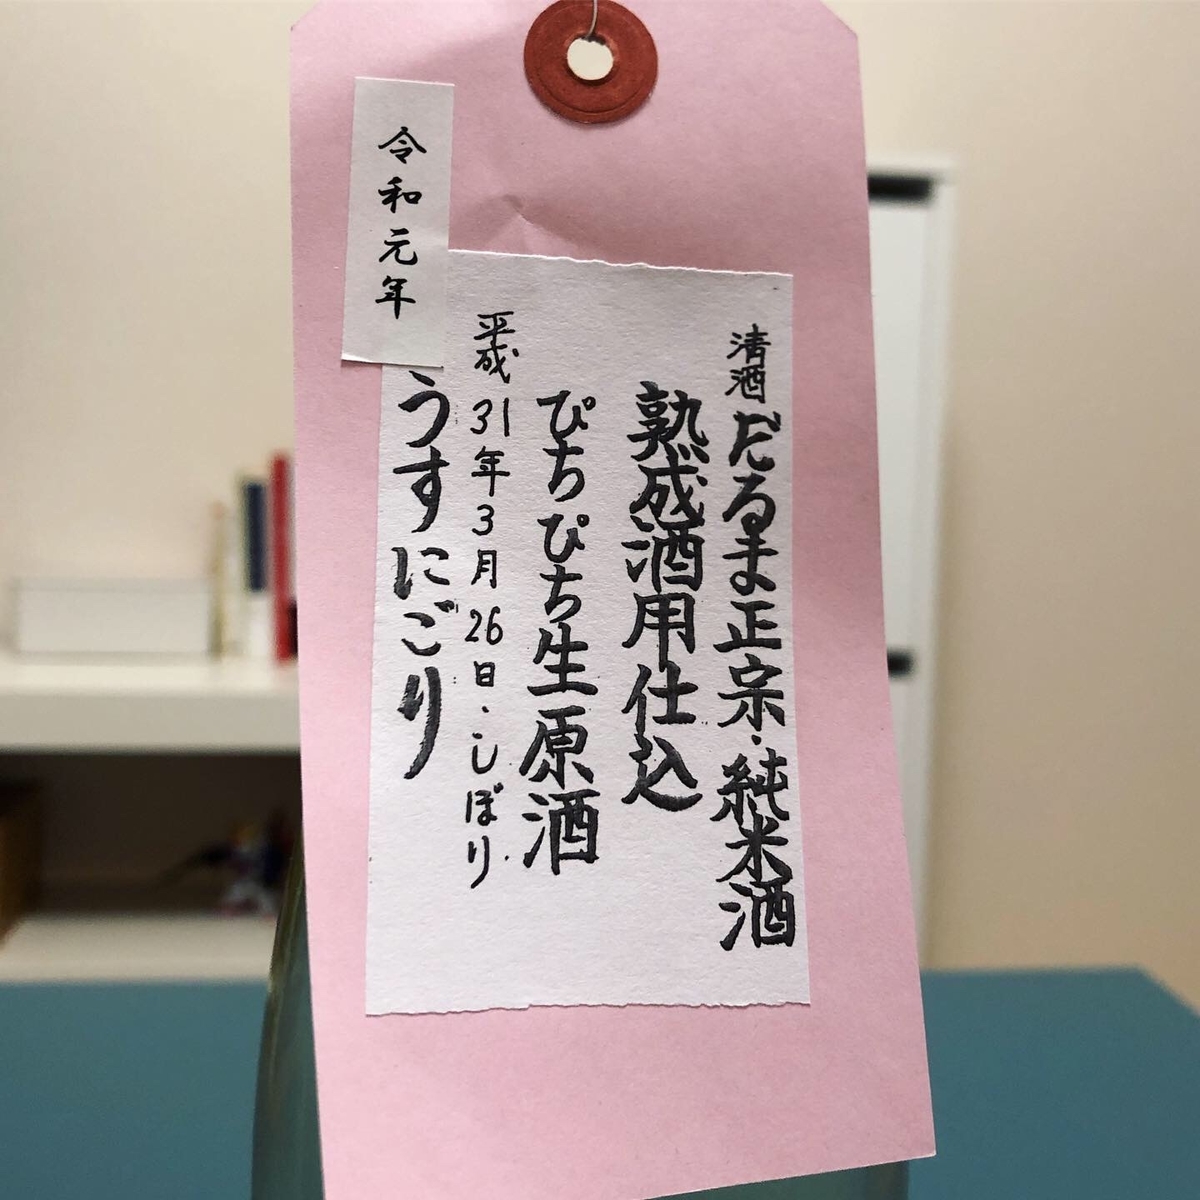 清酒だるま正宗・純米酒
熟成酒用仕込
ぴちぴち生原酒
平成31年3月26日・しぼり
うすにごり
令和元年